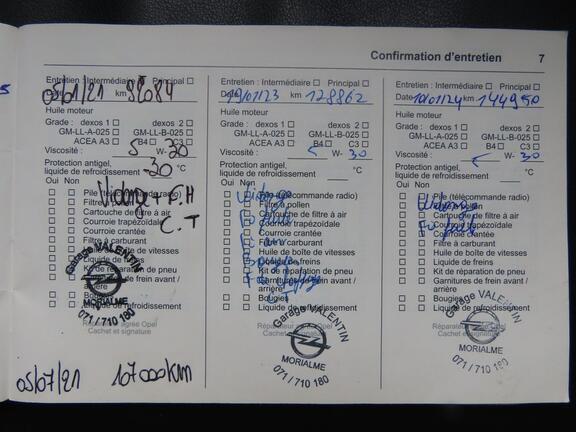 Confirmation d'entretien 7
Entretien : Intermédiaire Principal
05/01/21 km
Huile moteur
Grade : dexos 1 dexos 2
GM-LL-A-025 GM-LL-B-025
ACEA A3 B4 C3
Viscosité : 5 W- 20
Protection antigel,
liquide de refroidissement -30 °C
Oui Non
Pile (télécommande radio)
Vidange + F.H
Filtre à pollen
Cartouche de filtre à air
C.T
Courroie trapézoïdale
Courroie crantée
Filtre à carburant
Huile de boîte de vitesses
Liquide de freins
Kit de réparation de pneu
Garnitures de frein avant /
arrière
Bougies
Liquide de refroidissement
Garage VALENTIN
MORIALME
071/710 180
Réparateur agréé Opel
Cachet et signature
05/07/21 107000km
Entretien : Intermédiaire Principal
Date 19/01/23 km 128862
Huile moteur
Grade : dexos 1 dexos 2
GM-LL-A-025 GM-LL-B-025
ACEA A3 B4 C3
Viscosité : W- 30
Protection antigel,
liquide de refroidissement °C
Oui Non
Pile (télécommande radio)
Filtre à pollen
Cartouche de filtre à air
Courroie trapézoïdale
Courroie crantée
Filtre à carburant
Huile de boîte de vitesses
Liquide de freins
Kit de réparation de pneu
Garnitures de frein avant /
arrière
Bougies
Liquide de refroidissement
Réparateur agréé Opel
Cachet et signature
Garage VALENTIN
MORIALME
071/710 180
Entretien : Intermédiaire Principal
Date 10/01/24 km 144950
Huile moteur
Grade : dexos 1 dexos 2
GM-LL-A-025 GM-LL-B-025
ACEA A3 B4 C3
Viscosité : W- 30
Protection antigel,
liquide de refroidissement °C
Oui Non
Pile (télécommande radio)
Filtre à pollen
Cartouche de filtre à air
Courroie trapézoïdale
Courroie crantée
Filtre à carburant
Huile de boîte de vitesses
Liquide de freins
Kit de réparation de pneu
Garnitures de frein avant /
arrière
Bougies
Liquide de refroidissement
Réparateur agréé Opel
Cachet et signature
Garage VALENTIN
MORIALME
071/710 180